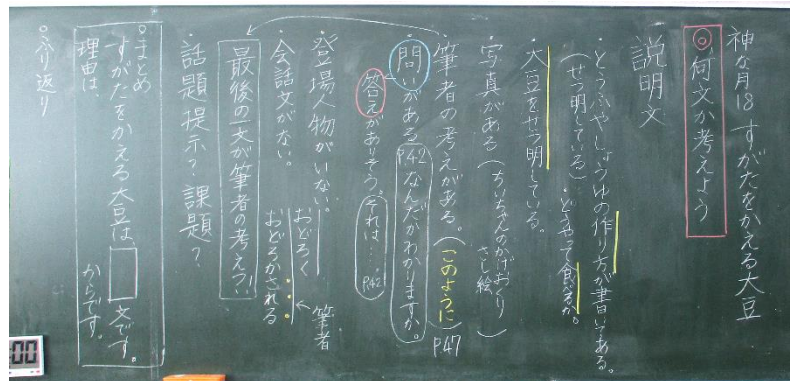 神な月18 すがたをかえる大豆
◎何文か考えよう
説明文
・とうふやしょうゆの作り方が書いてある。
(せつ明している)・どうやって食べるか。
・大豆をせつ明している。
・写真がある(ちいちゃんのかげおくり さし絵)
・筆者の考えがある。(このように)P47
・問いがある P42 なんだかわかりますか。
答えがありそう。それは… P42
・登場人物がいない。
おどろく ← 筆者
・会話文がない。 おどろかされる
最後の一文が筆者の考え?!
・話題提示?課題?
○まとめ
すがたをかえる大豆は、□文です。
理由は、 からです。
○ふり返り
00